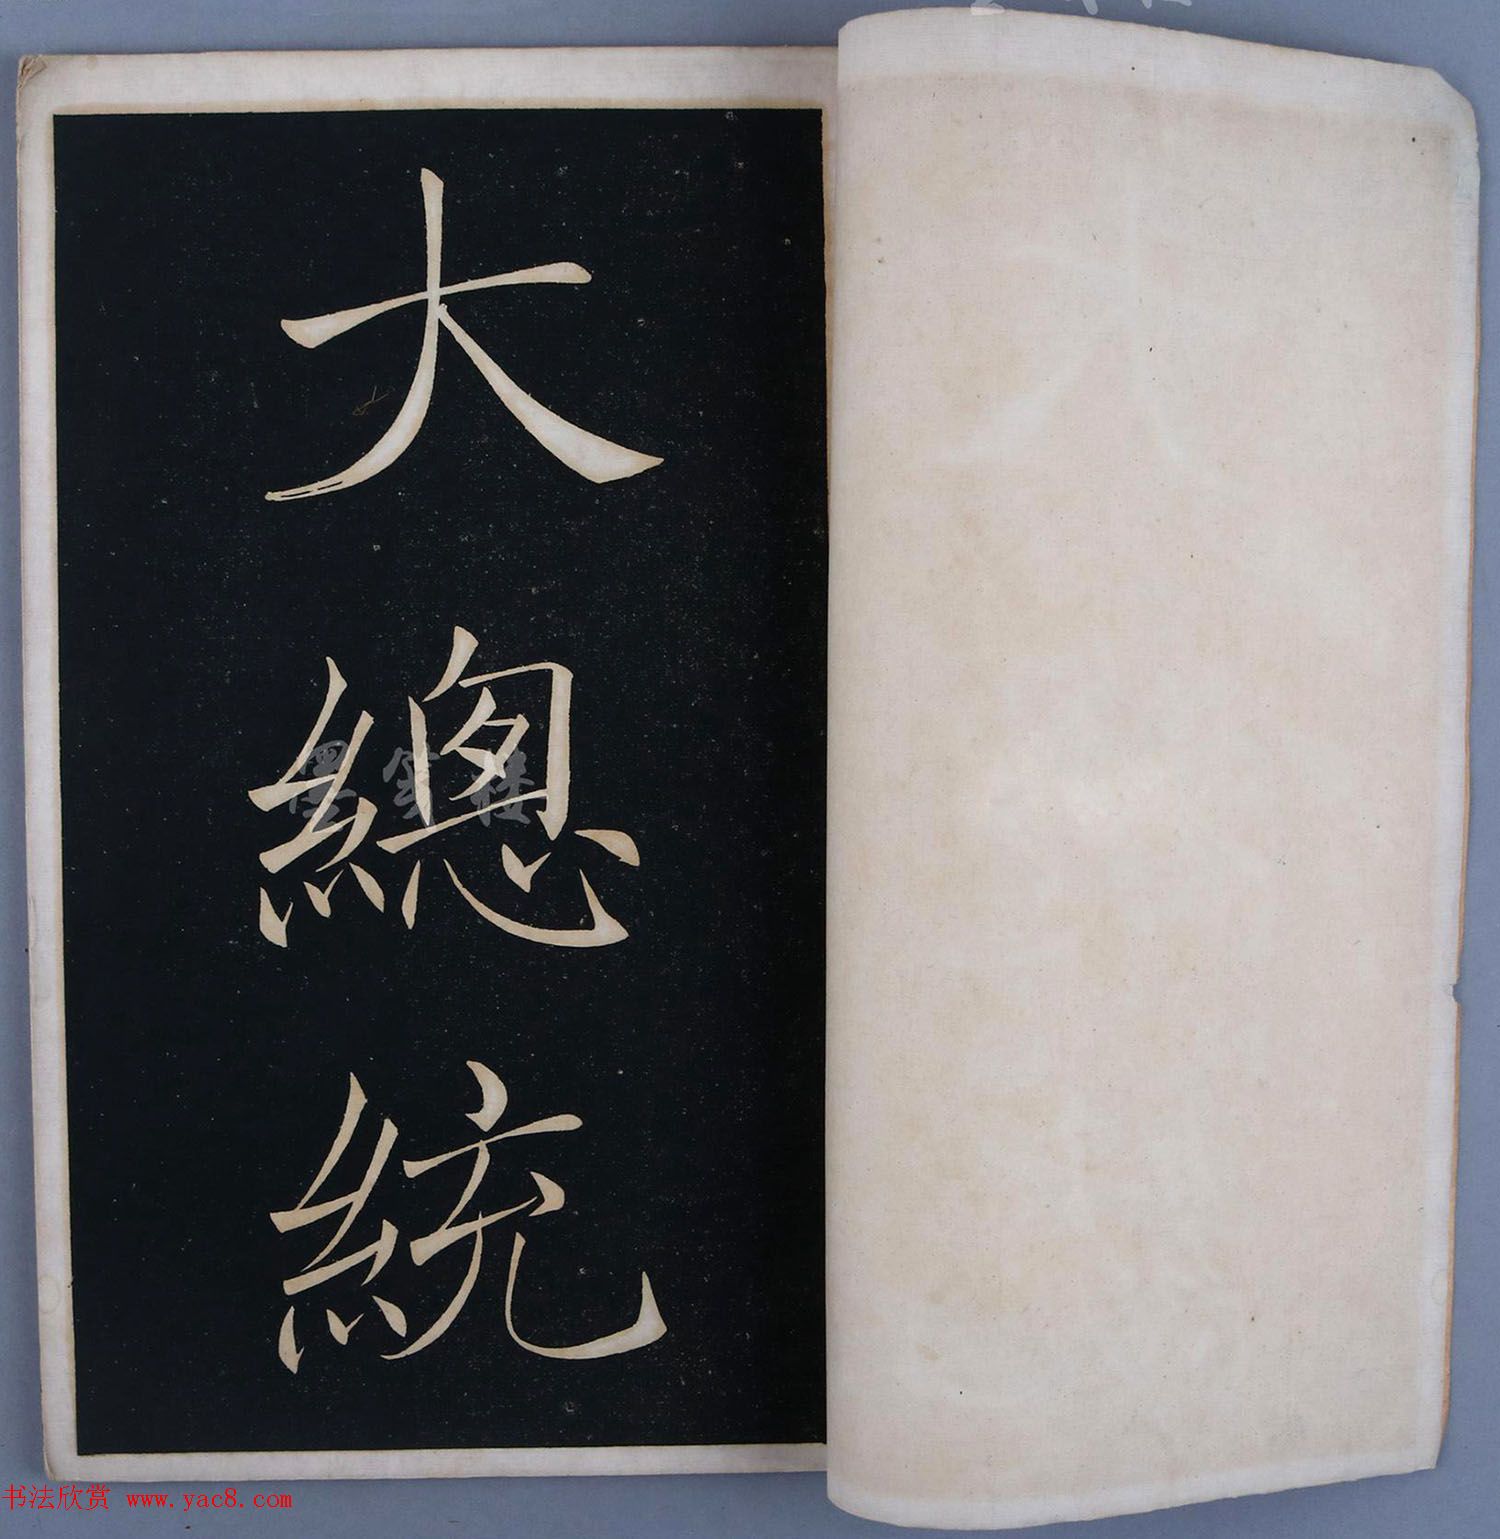 大總統
墨笺楼
书法欣赏 www.yac8.com